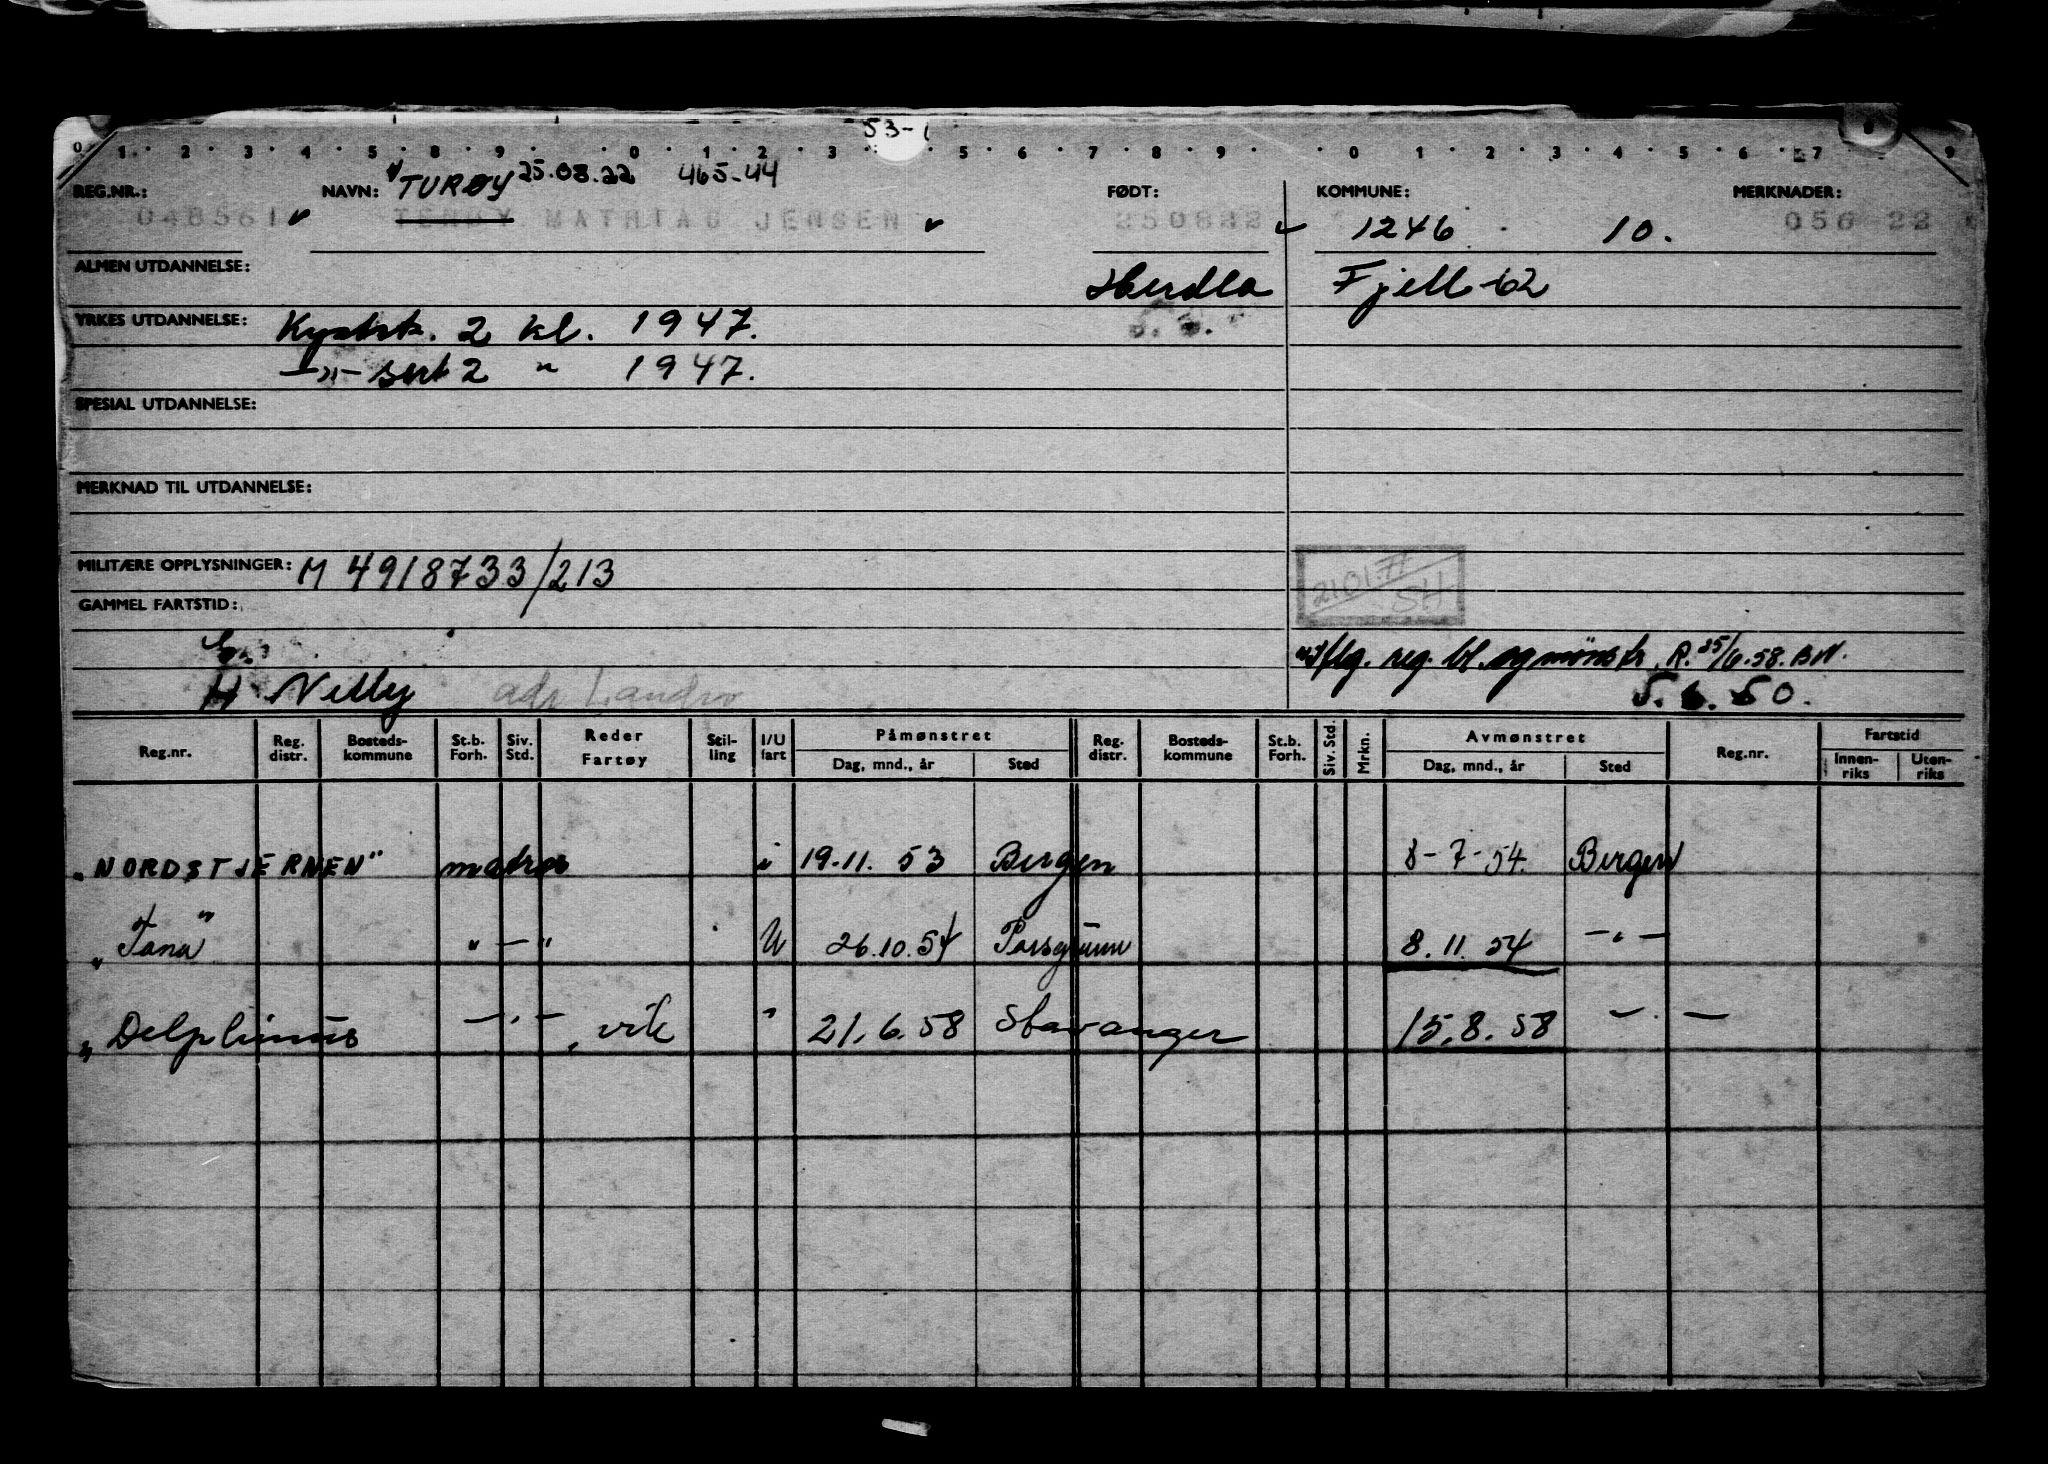 53-1
0 1 2 3 4 5 8 9 0 1 2 3 5 6 7 8 9 0 1 2 3 4 5 6 7 9
TURØY 25.08.22 465-44
REG.NR.: NAVN: FØDT: KOMMUNE: MERKNADER:
048561 MATHIAS JENSEN 250822 1246 10. 056 22
ALMEN UTDANNELSE: Herdla Fjell-62
YRKES UTDANNELSE: Kystsk. 2 kl. 1947.
-"- sert 2 " 1947.
SPESIAL UTDANNELSE:
MERKNAD TIL UTDANNELSE:
MILITÆRE OPPLYSNINGER: M 4918733/213
2101.77
SH
GAMMEL FARTSTID:
reg. bl. og mønstr. R. 25/6.58. BN.
G:
H Nelly adr Landro 5.6.50.
Reg.nr. Reg. distr. Bosteds-kommune St.b. Forh. Siv. Std. Reder Fartøy Stil-ling I/U fart Påmønstret Dag, mnd., år Sted Reg. distr. Bosteds-kommune St.b. Forh. Siv. Std. Mrkn. Avmønstret Dag, mnd., år Sted Reg.nr. Fartstid Innen-riks Uten-riks
„NORDSTJERNEN" matros i 19.11. 53 Bergen 8-7-54. Bergen
„Tana" "—" U 26.10.54 Porsgrunn 8.11.54 —"—
„Delphinus —"— vik " 21.6.58 Stavanger 15.8.58 —"—